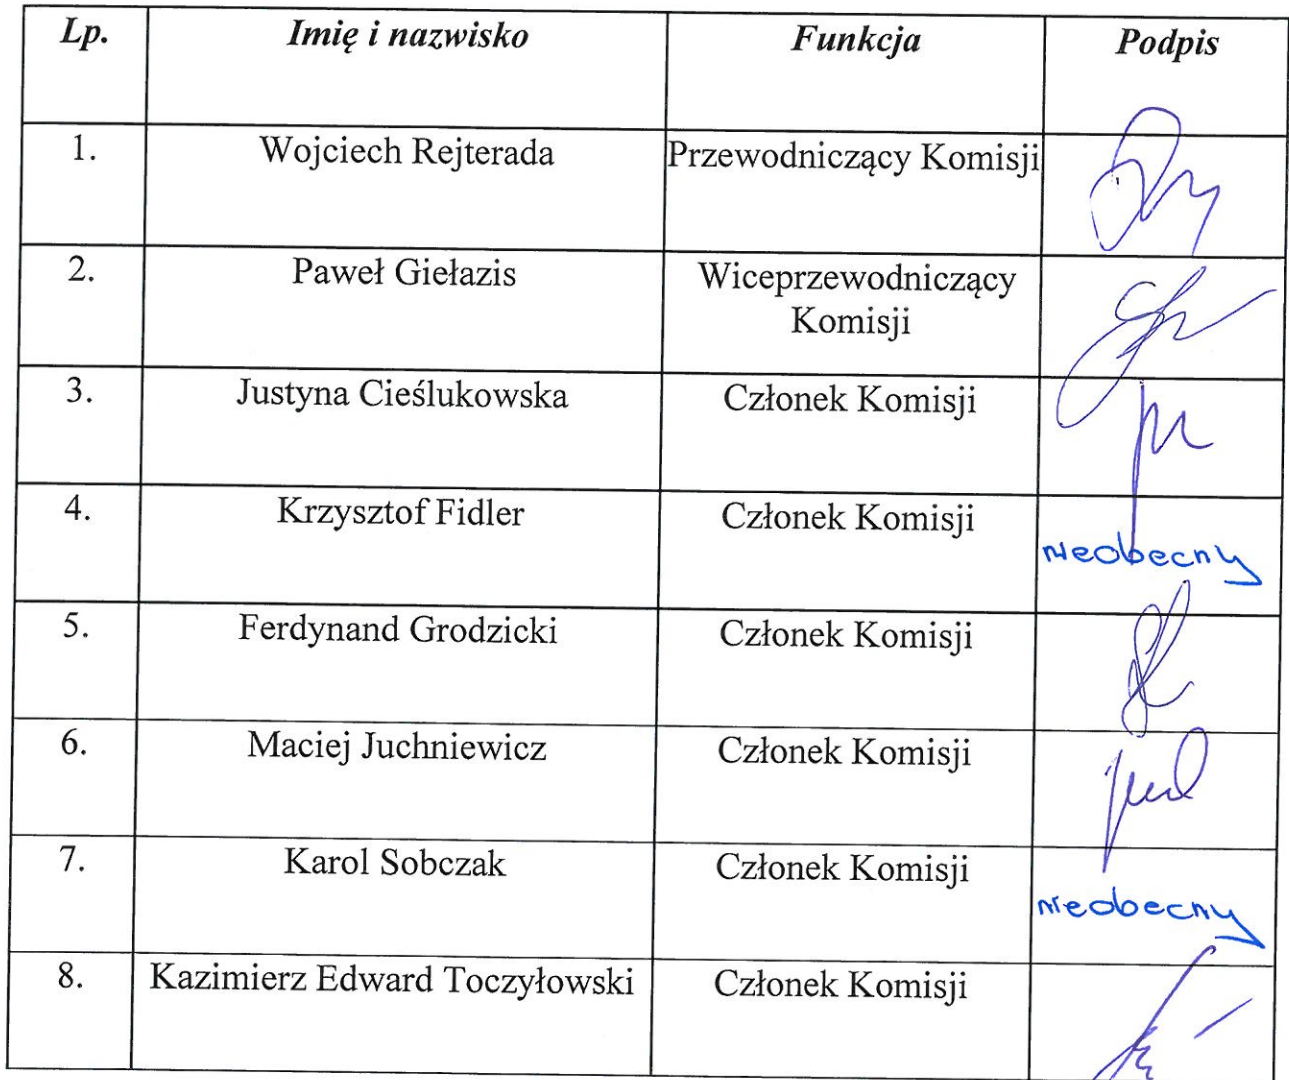 Lp. Imię i nazwisko Funkcja Podpis
1. Wojciech Rejterada Przewodniczący Komisji
2. Paweł Giełazis Wiceprzewodniczący
Komisji
3. Justyna Cieślukowska Członek Komisji
4. Krzysztof Fidler Członek Komisji nieobecny
5. Ferdynand Grodzicki Członek Komisji
6. Maciej Juchniewicz Członek Komisji
7. Karol Sobczak Członek Komisji nieobecny
8. Kazimierz Edward Toczyłowski Członek Komisji